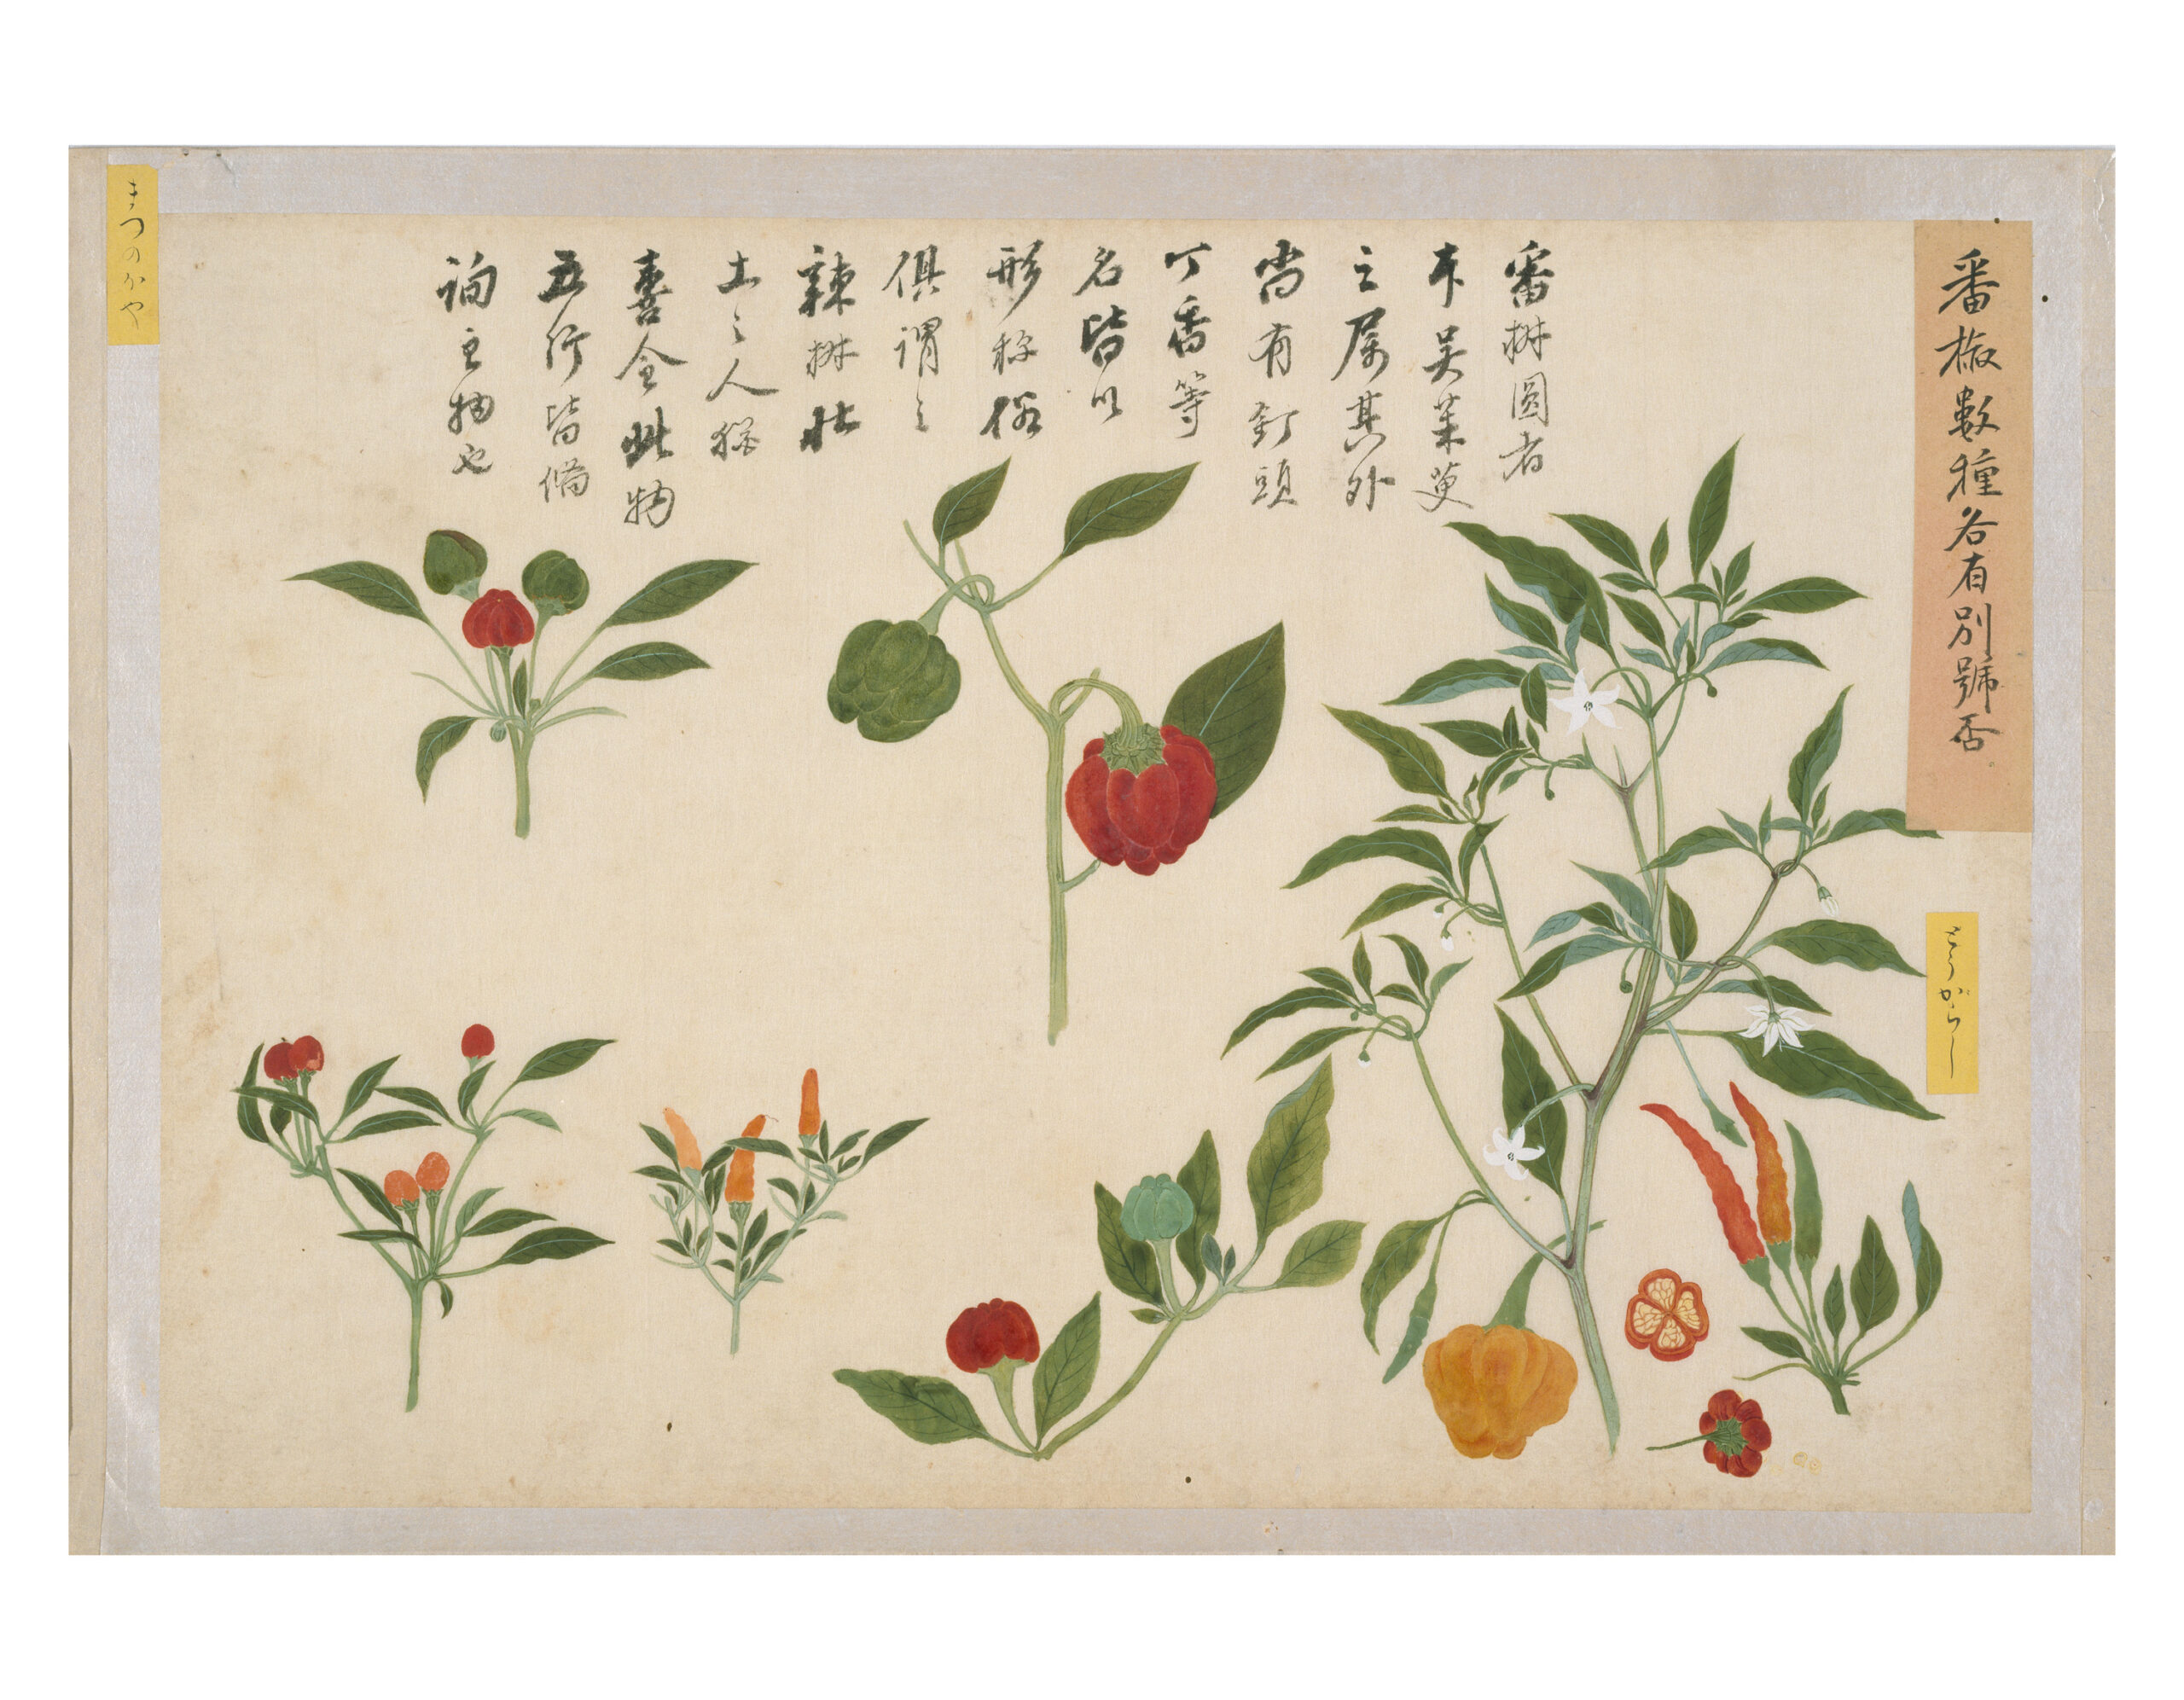 番椒數種各有別號否
とうがらし
番椒圓者
本吴茱萸
之属其外
尚有釘頭
丁香等
名皆以
形称俗
俱謂之
辣椒北
土之人
喜食此物
五行皆備
之物也
まつのかや